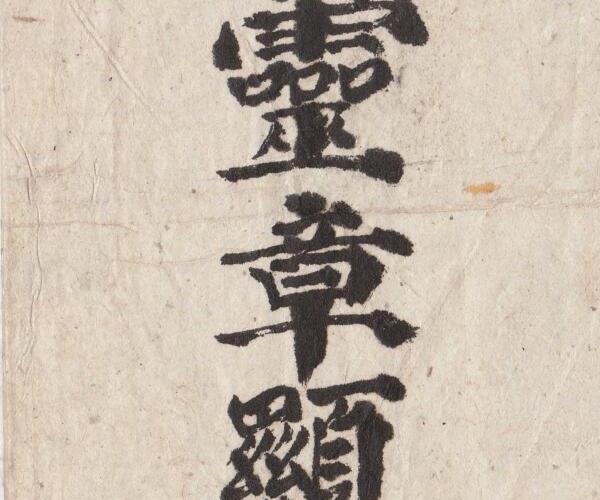 靈章顯